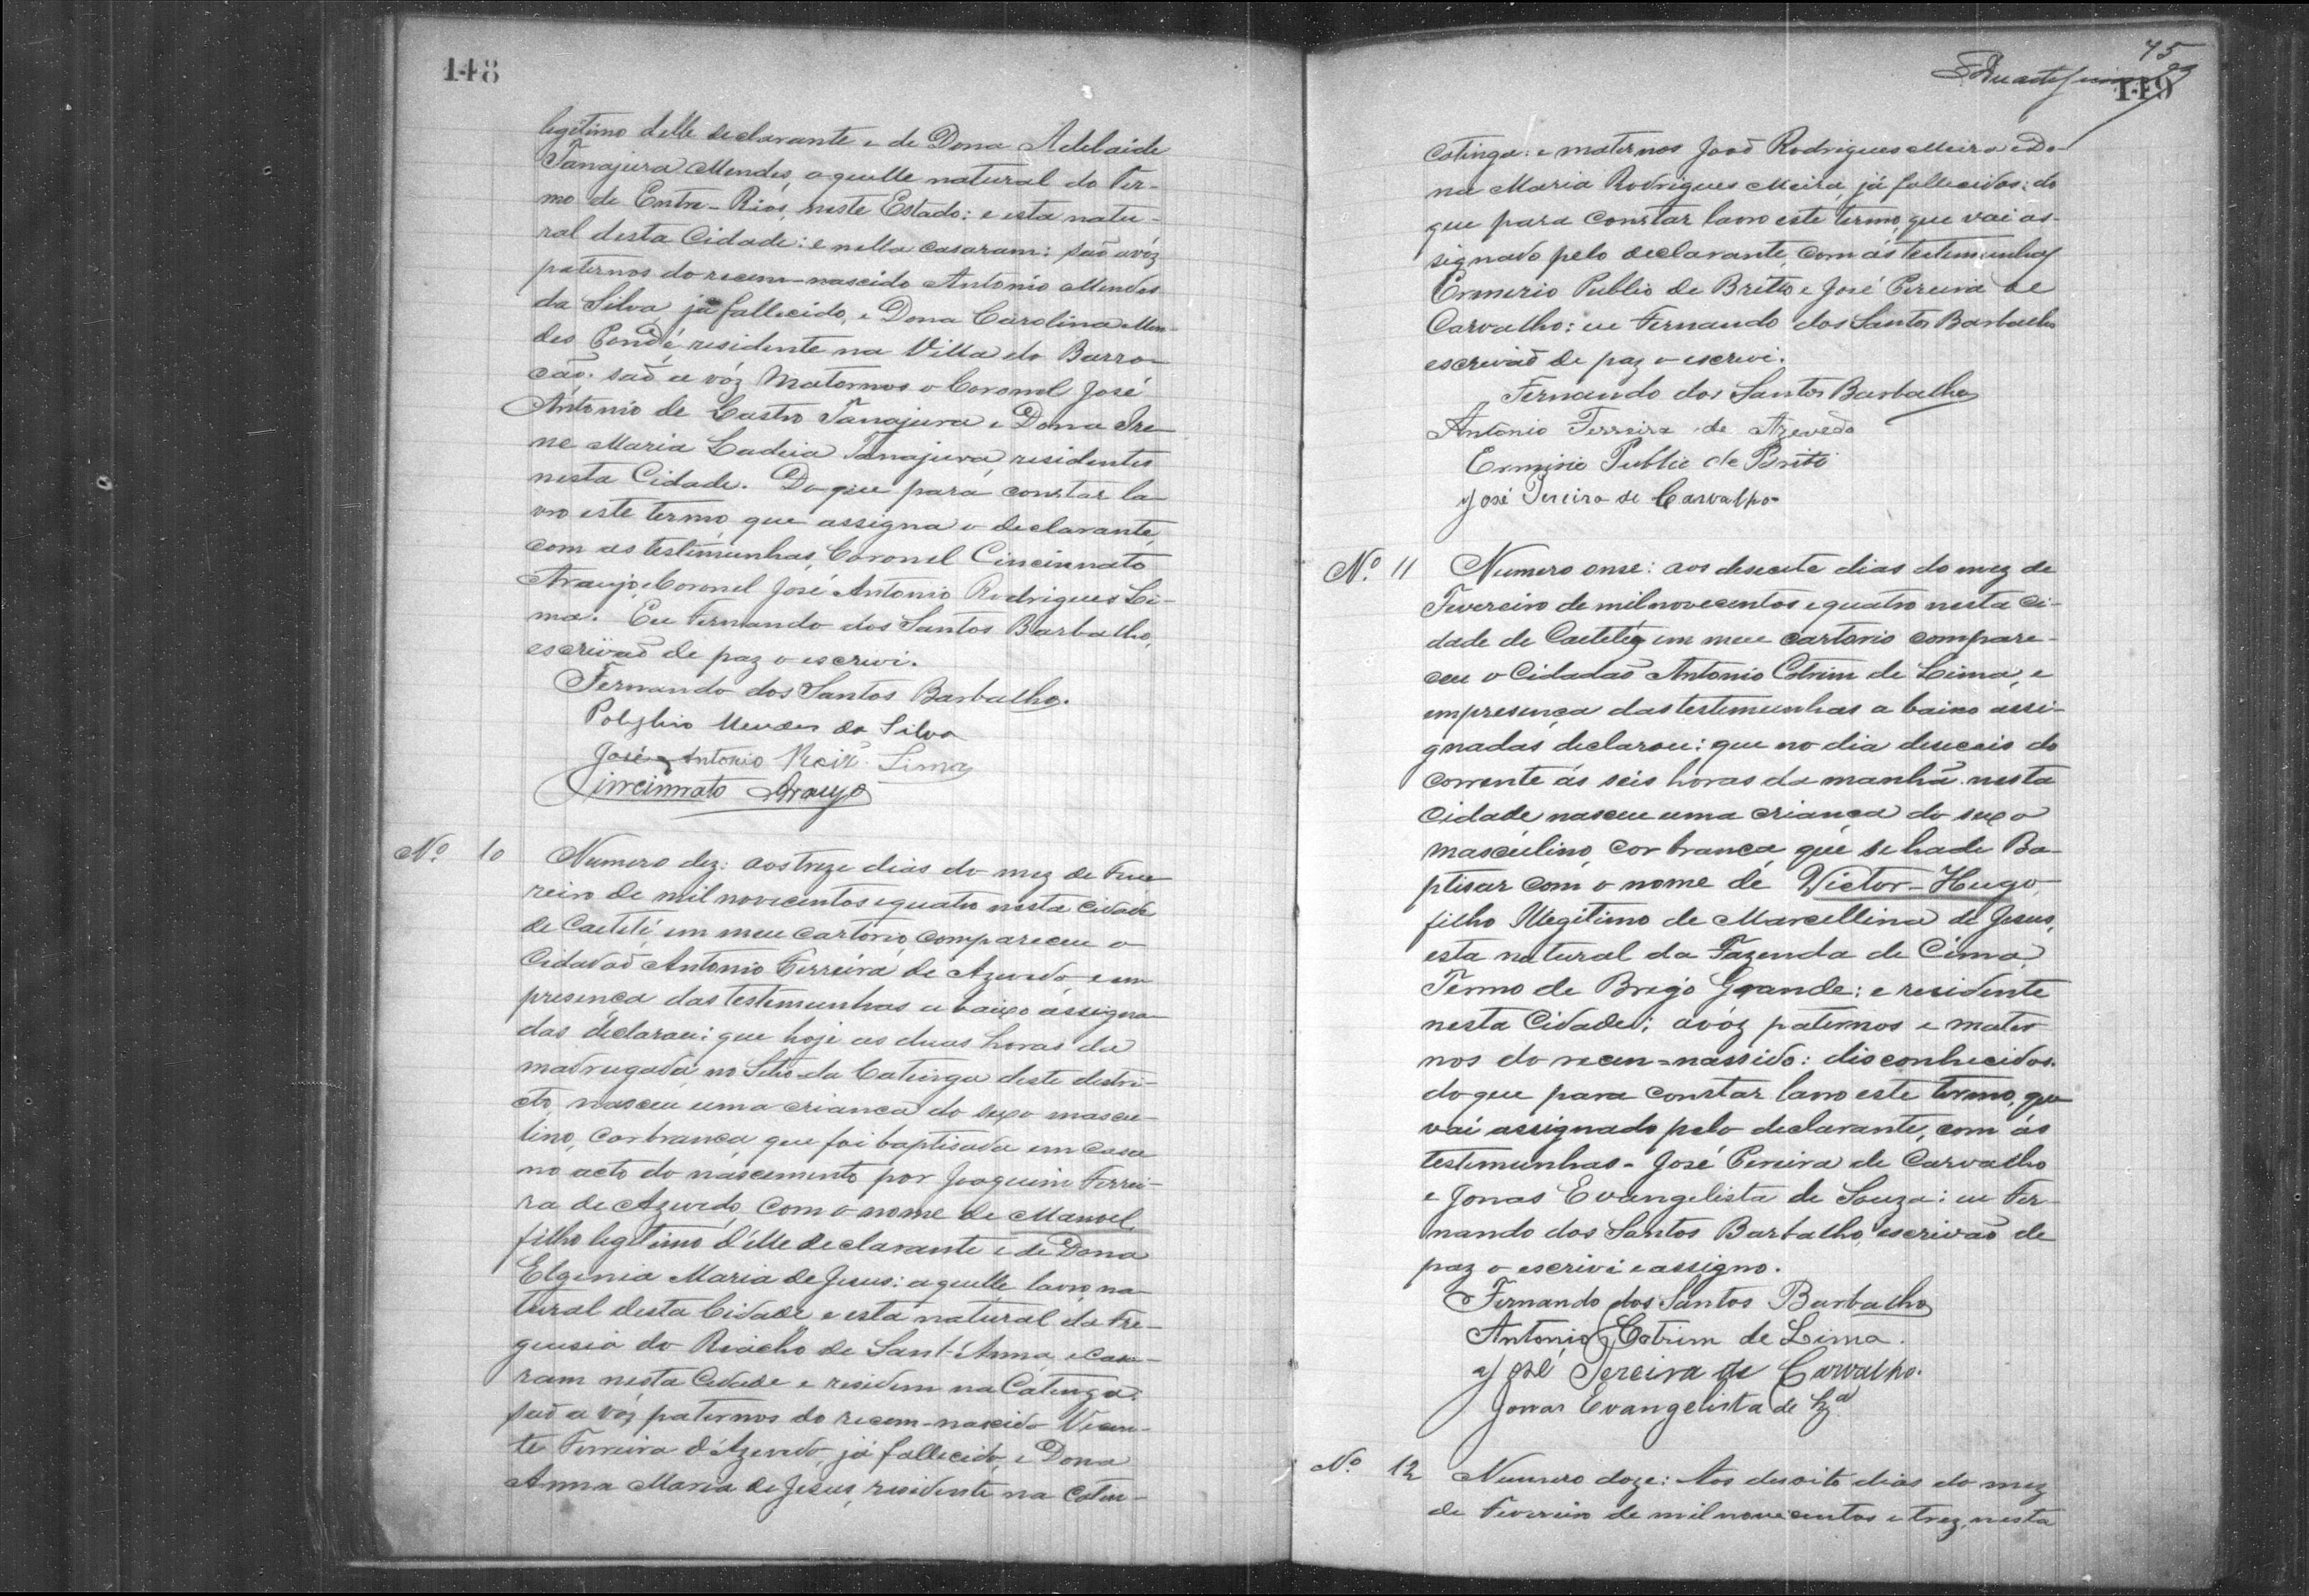 148
legitimo delle declarante e de Dona Adelaide
Tanajura Mendes, aquelle natural do Ter-
mo de Entre-Rios, neste Estado: e esta natu-
ral desta Cidade: e nella casaram: saõ avóz
paternos do recem-nascido Antonio Mendes
da Silva, já fallecido, e Dona Carolina Men-
des Pondé, residente na Villa do Barra-
caõ. saõ a vóz Maternos o Coronel José
Antonio de Castro Tanajura e Dona Ire-
ne Maria Ladeia Tanajura, residentes
nesta Cidade. Do que para constar la-
vro este termo, que assigna o declarante,
com as testimunhas, Coronel Cincinnato
Araujo, Coronel José Antonio Rodrigues Li-
ma. Eu Fernando dos Santos Barbalho,
escrivaõ de paz o escrevi.
Fernando dos Santos Barbalho.
Polybio Mendes da Silva
José Antonio Roiz. Lima
Cincinnato Araujo
Nº. 10 Numero dez: aos treze dias do mez de Feve
reiro de mil novecentos e quatro nesta cidade
de Caeteté em meu cartorio, compareceu o
Cidadaõ Antonio Ferreira de Azevedo e em
presença das testemunhas a baixo assigna-
das declarou: que hoje as duas horas da
madrugada, no Sitio da Catinga deste distri-
cto, nasceu uma criança do sexo mascu-
lino, cor branca, que foi baptisada em casa
no acto do nascemento por Joaquim Ferrei-
ra de Azevedo, com o nome de Manoel,
filho legitimo d'elle declarante e de Dona
Elgenia Maria de Jesus: aquelle lavro, na-
tural desta Cidade, e esta natural da Fre-
guesia do Riacho de Sant'Anna, e casa-
ram nesta Cidade e residem na Catinga:
saõ a vóz paternos do recem-nascido Vicen-
te Ferreira d'Azevedo, já fallecido, e Dona
Anna Maria de Jesus, residente na Catin-
75
149
Catinga: e maternos Joaõ Rodrigues Meira e Do-
na Maria Rodrigues Meira, já fallecidos: do
que para constar lavro este termo, que vai as-
signado pelo declarante, com as testemunhas
Ermerio Publio de Britto e José Pereira de
Carvalho: eu Fernando dos Santos Barbalho
escrivaõ de paz o escrevi.
Fernando dos Santos Barbalho
Antonio Ferreira de Azevedo
Ermirio Publio de Brito
José Pereira de Carvalho
Nº. 11 Numero onse: aos desecete dias do mez de
Fevereiro de mil novecentos e quatro nesta Ci-
dade de Caeteté, em meu cartorio compare-
ceu o Cidadaõ Antonio Cotrim de Lima, e
empresença das testemunhas a baixo assi-
gnadas, declarou: que no dia deseceis do
corrente ás seis horas da manhã nesta
Cidade nasceu uma criança do sexo
masculino, cor branca, que se hade Ba-
ptisar com o nome de Victor-Hugo,
filho Illegitimo de Marcellina de Jesus,
esta natural da Fazenda de Cima,
Termo de Brejo Grande: e residente
nesta Cidade; avóz paternos e mater
nos do recen=nassido: disconhecidos.
do que para constar lavro este termo, que
vai assignado pelo declarante, com ás
testemunhas - José Pereira de Carvalho
e Jonas Evangelista de Souza: eu Fer-
nando dos Santos Barbalho, escrivaõ de
paz o escrivi e assigno.
Fernando dos Santos Barbalho
Antonio Cotrim de Lima.
José Pereira de Carvalho.
Jonas Evangelista de Sza
Nº. 12 Numero doze: Aos desoito dias do mez
de Fevereiro de mil novecentos e trez, nesta